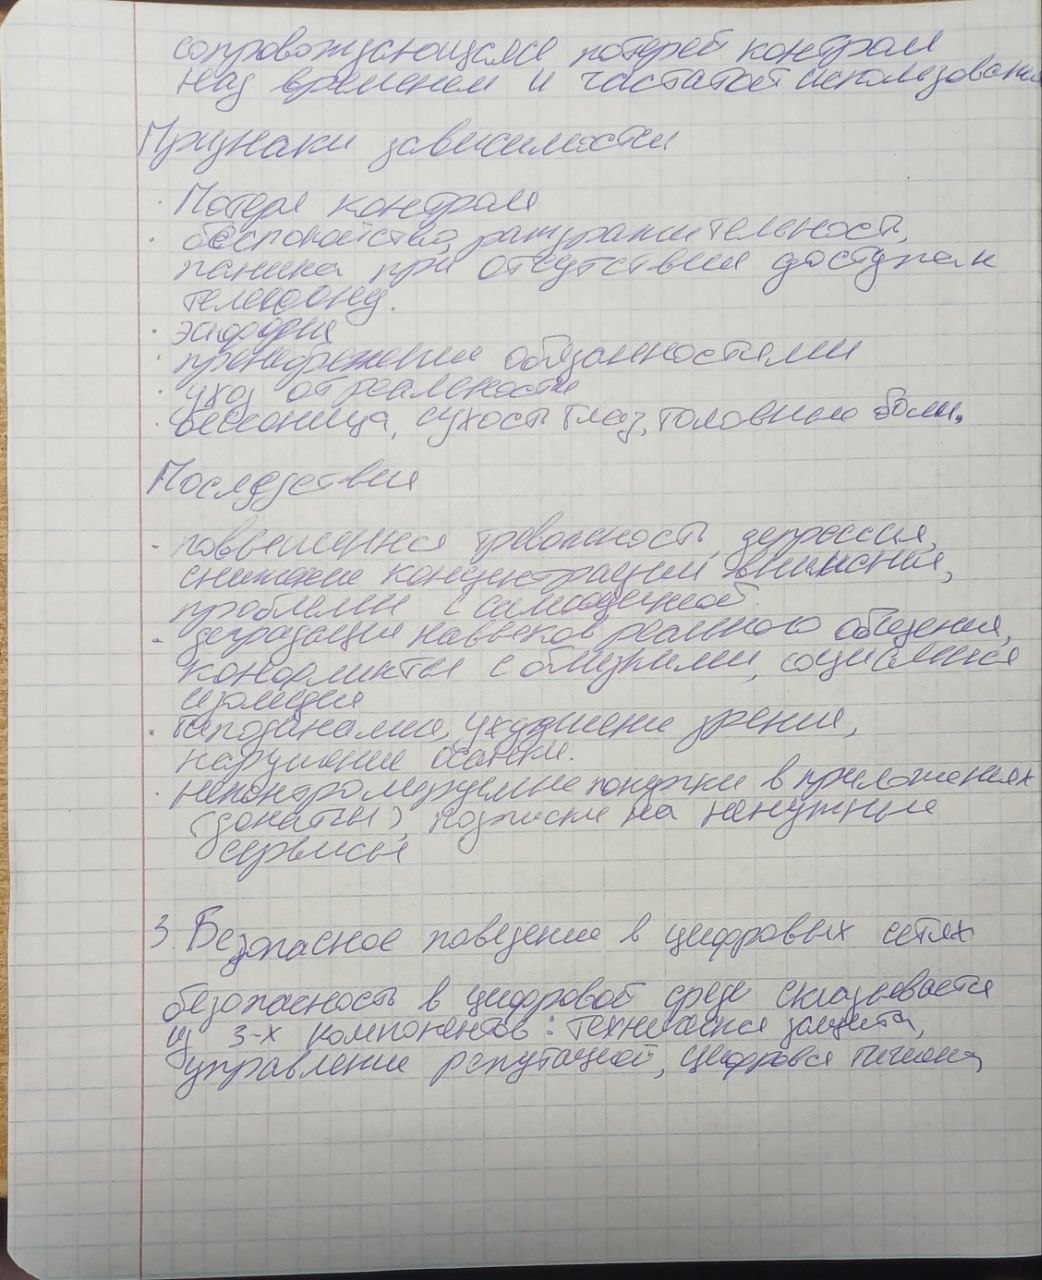 сопровождающаяся потерей контроля
над временем и частотой использования
Признаки зависимости
· Потеря контроля
· беспокойство, раздражительность,
паника при отсутствии доступа к
телефону.
· эйфория
· пренебрежение обязанностями
· уход от реальности
· бессонница, сухость глаз, головные боли.
Последствия
- повышенная тревожность, депрессия,
снижение концентрации внимания,
проблемы с самооценкой.
- деградация навыков реального общения,
конфликты с близкими, социальная
изоляция
· гиподинамия, ухудшение зрения,
нарушение осанки.
· неконтролируемые покупки в приложениях
(донаты), подписки на ненужные
сервисы
3. Безопасное поведение в цифровых сетях
безопасность в цифровой среде складывается
из 3-х компонентов: техническая защита,
управление репутацией, цифровая гигиена